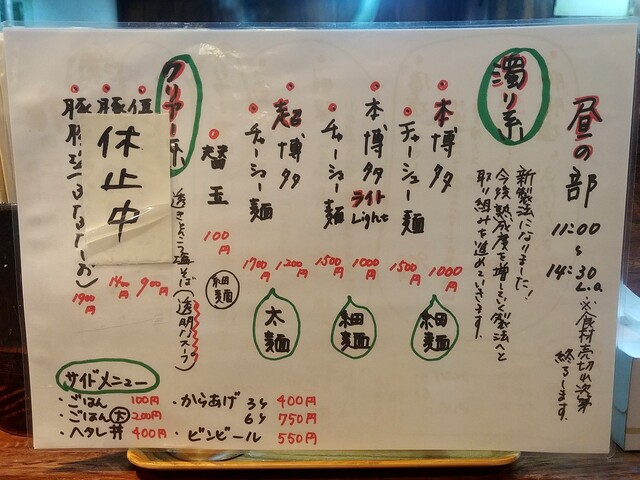 昼の部
11:00
〜
14:30
L.o
※食材売切れ次第
終了します。
濁り系
新製法になりました！
今後熟成度を増していく製法へと
取り組みを進めていきます。
・本博多 1000円
・チャーシュー麺 1500円
細麺
・本博多ライトLight 1000円
・チャーシュー麺 1500円
細麺
・超博多 1200円
・チャーシュー麺 1700円
太麺
・替玉 100円
細麺
クリアー系
透きとおる塩そば(透明スープ)
900円
豚 1400円
豚豚 1900円
休止中
サイドメニュー
・ごはん 100円
・ごはん大 200円
・ヘタレ丼 400円
・からあげ 3ヶ 400円
6ヶ 750円
・ビンビール 550円